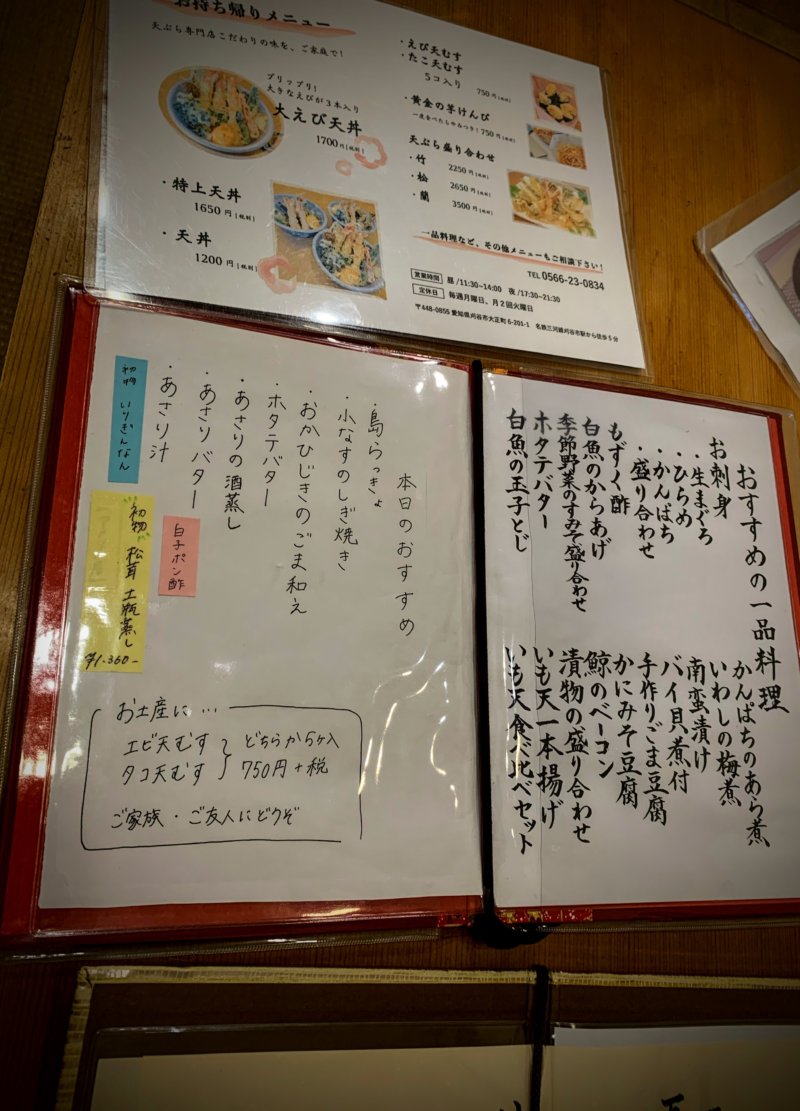 お持ち帰りメニュー
天ぷら専門店こだわりの味を、ご家庭で!
プリップリ!
大きなえびが3本入り
大えび天丼
1700円(税別)
・特上天丼
1650円(税別)
・天丼
1200円(税別)
・えび天むす
・たこ天むす
5コ入り
750円(税別)
・黄金の芋けんぴ
一度食べたらやみつき!750円(税別)
天ぷら盛り合わせ
・竹 2250円(税別)
・松 2650円(税別)
・蘭 3500円(税別)
一品料理など、その他メニューもご相談下さい!
TEL 0566-23-0834
営業時間 昼/11:30~14:00 夜/17:30~21:30
定休日 毎週月曜日、月2回火曜日
〒448-0855 愛知県刈谷市大正町6-201-1 名鉄三河線刈谷市駅から徒歩5分
本日のおすすめ
・島らっきょ
・小なすのしぎ焼き
・おかひじきのごま和え
・ホタテバター
・あさりの酒蒸し
・あさりバター
・あさり汁
白子ポン酢
初物 いりぎんなん
初物 松茸土瓶蒸し
¥1,360-
お土産に…
エビ天むす
タコ天むす
どちらか5ヶ入
750円+税
ご家族・ご友人にどうぞ
おすすめの一品料理
お刺身
・生まぐろ
・ひらめ
・かんぱち
・盛り合わせ
もずく酢
白魚のからあげ
季節野菜のすみそ盛り合わせ
ホタテバター
白魚の玉子とじ
かんぱちのあら煮
いわしの梅煮
南蛮漬け
バイ貝煮付
手作りごま豆腐
かにみそ豆腐
鯨のベーコン
漬物の盛り合わせ
いも天一本揚げ
いも天食べ比べセット